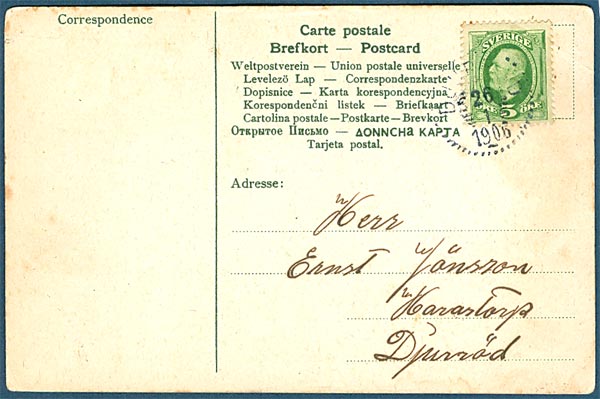 Correspondence
Carte postale
Brefkort — Postcard
Weltpostverein — Union postale universelle
Levelező Lap — Correspondenzkarte
Dopisnice — Karta korespondencyjna
Korespondenční listek — Briefkaart
Cartolina postale — Postkarte — Brevkort
Открытое Письмо — ДОПИСНА КАРТА
Tarjeta postal.
SVERIGE
5 ÖRE
26
1
1906
Adresse:
Herr
Ernst Jönsson
Harastorp
Djurröd